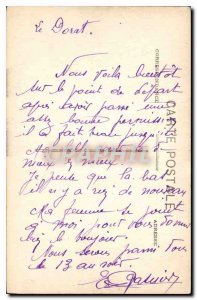 Le Dorat.
Nous voilà bientôt
sur le point de départ
après avoir passé une
assez bonne permission
il a fait beau jusqu'
mieux
je pense que là bas
il n'y a rien de nouveau
Ma femme se joint
à moi pour vous donner
bien le bonjour.
Nous serons parmi vous
le 13 au soir.
CARTE POSTALE